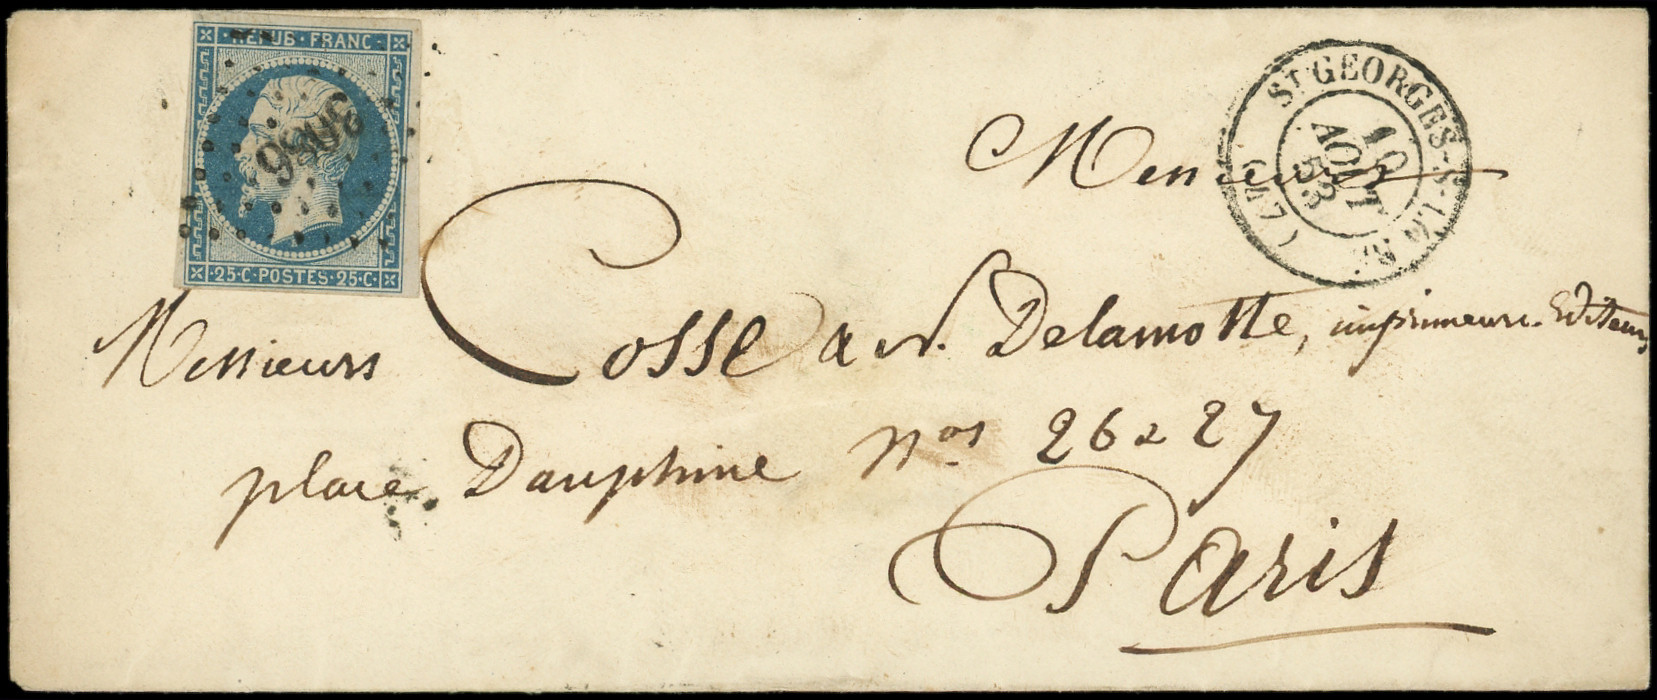 REPUB · FRANC ·
25·C·POSTES·25·C·
ST GEORGES-S-L
10
AOUT
53
Monsieur
Messieurs Cosse & N. Delamotte, imprimeurs-Editeurs
place Dauphine nos 26 & 27
Paris